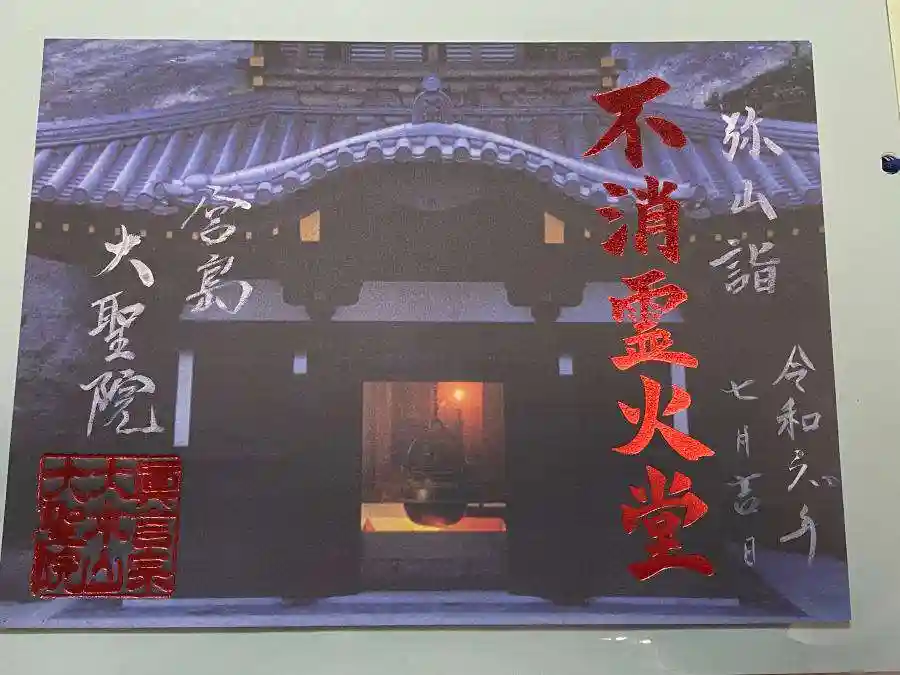 弥山詣
令和 年
七月吉日
不消霊火堂
宮島
大聖院
眞言宗
大本山
大聖院